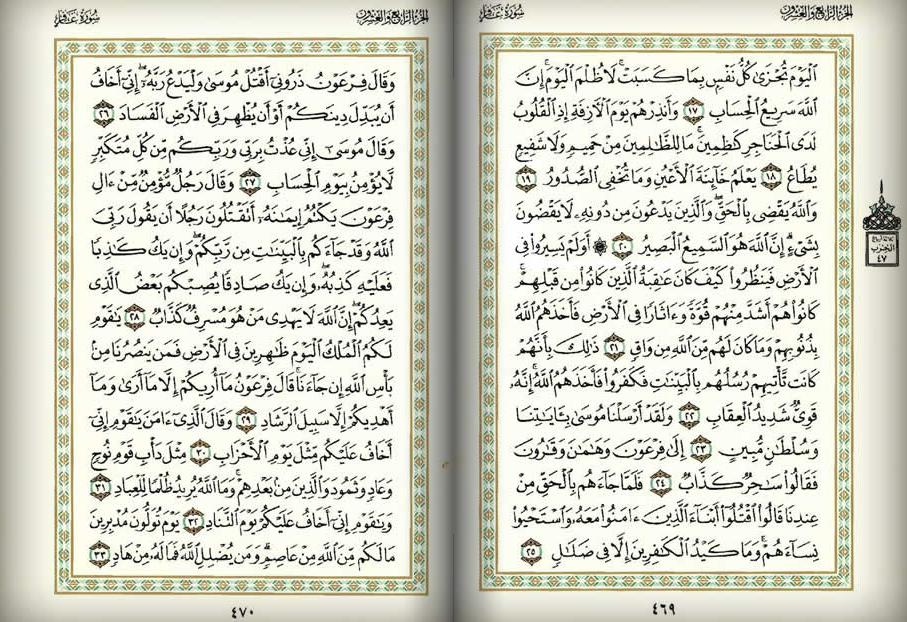 الجزء الرابع والعشرون
سورة غافر
ٱلۡيَوۡمَ تُجۡزَىٰ كُلُّ نَفۡسِۭ بِمَا كَسَبَتۡۚ لَا ظُلۡمَ ٱلۡيَوۡمَۚ إِنَّ
ٱللَّهَ سَرِيعُ ٱلۡحِسَابِ ١٧ وَأَنذِرۡهُمۡ يَوۡمَ ٱلۡأٓزِفَةِ إِذِ ٱلۡقُلُوبُ
لَدَى ٱلۡحَنَاجِرِ كَٰظِمِينَۚ مَا لِلظَّٰلِمِينَ مِنۡ حَمِيمٖ وَلَا شَفِيعٖ
يُطَاعُ ١٨ يَعۡلَمُ خَآئِنَةَ ٱلۡأَعۡيُنِ وَمَا تُخۡفِي ٱلصُّدُورُ ١٩
وَٱللَّهُ يَقۡضِي بِٱلۡحَقِّۖ وَٱلَّذِينَ يَدۡعُونَ مِن دُونِهِۦ لَا يَقۡضُونَ
بِشَيۡءٍۗ إِنَّ ٱللَّهَ هُوَ ٱلسَّمِيعُ ٱلۡبَصِيرُ ٢٠ ۞ أَوَلَمۡ يَسِيرُواْ فِي
ٱلۡأَرۡضِ فَيَنظُرُواْ كَيۡفَ كَانَ عَٰقِبَةُ ٱلَّذِينَ كَانُواْ مِن قَبۡلِهِمۡۚ
كَانُواْ هُمۡ أَشَدَّ مِنۡهُمۡ قُوَّةٗ وَءَاثَارٗا فِي ٱلۡأَرۡضِ فَأَخَذَهُمُ ٱللَّهُ
بِذُنُوبِهِمۡ وَمَا كَانَ لَهُم مِّنَ ٱللَّهِ مِن وَاقٖ ٢١ ذَٰلِكَ بِأَنَّهُمۡ
كَانَت تَّأۡتِيهِمۡ رُسُلُهُم بِٱلۡبَيِّنَٰتِ فَكَفَرُواْ فَأَخَذَهُمُ ٱللَّهُۚ إِنَّهُۥ
قَوِيّٞ شَدِيدُ ٱلۡعِقَابِ ٢٢ وَلَقَدۡ أَرۡسَلۡنَا مُوسَىٰ بِـَٔايَٰتِنَا
وَسُلۡطَٰنٖ مُّبِينٍ ٢٣ إِلَىٰ فِرۡعَوۡنَ وَهَٰمَٰنَ وَقَٰرُونَ
فَقَالُواْ سَٰحِرٞ كَذَّابٞ ٢٤ فَلَمَّا جَآءَهُم بِٱلۡحَقِّ مِنۡ
عِندِنَا قَالُواْ ٱقۡتُلُوٓاْ أَبۡنَآءَ ٱلَّذِينَ ءَامَنُواْ مَعَهُۥ وَٱسۡتَحۡيُواْ
نِسَآءَهُمۡۚ وَمَا كَيۡدُ ٱلۡكَٰفِرِينَ إِلَّا فِي ضَلَٰلٖ ٢٥
٤٦٩
ثلاثة أرباع
الحزب
٤٧
الجزء الرابع والعشرون
سورة غافر
وَقَالَ فِرۡعَوۡنُ ذَرُونِيٓ أَقۡتُلۡ مُوسَىٰ وَلۡيَدۡعُ رَبَّهُۥٓۖ إِنِّيٓ أَخَافُ
أَن يُبَدِّلَ دِينَكُمۡ أَوۡ أَن يُظۡهِرَ فِي ٱلۡأَرۡضِ ٱلۡفَسَادَ ٢٦
وَقَالَ مُوسَىٰٓ إِنِّي عُذۡتُ بِرَبِّي وَرَبِّكُم مِّن كُلِّ مُتَكَبِّرٖ
لَّا يُؤۡمِنُ بِيَوۡمِ ٱلۡحِسَابِ ٢٧ وَقَالَ رَجُلٞ مُّؤۡمِنٞ مِّنۡ ءَالِ
فِرۡعَوۡنَ يَكۡتُمُ إِيمَٰنَهُۥٓ أَتَقۡتُلُونَ رَجُلًا أَن يَقُولَ رَبِّيَ
ٱللَّهُ وَقَدۡ جَآءَكُم بِٱلۡبَيِّنَٰتِ مِن رَّبِّكُمۡۖ وَإِن يَكُ كَٰذِبٗا
فَعَلَيۡهِ كَذِبُهُۥۖ وَإِن يَكُ صَادِقٗا يُصِبۡكُم بَعۡضُ ٱلَّذِي
يَعِدُكُمۡۖ إِنَّ ٱللَّهَ لَا يَهۡدِي مَنۡ هُوَ مُسۡرِفٞ كَذَّابٞ ٢٨ يَٰقَوۡمِ
لَكُمُ ٱلۡمُلۡكُ ٱلۡيَوۡمَ ظَٰهِرِينَ فِي ٱلۡأَرۡضِ فَمَن يَنصُرُنَا مِنۢ
بَأۡسِ ٱللَّهِ إِن جَآءَنَاۚ قَالَ فِرۡعَوۡنُ مَآ أُرِيكُمۡ إِلَّا مَآ أَرَىٰ وَمَآ
أَهۡدِيكُمۡ إِلَّا سَبِيلَ ٱلرَّشَادِ ٢٩ وَقَالَ ٱلَّذِيٓ ءَامَنَ يَٰقَوۡمِ إِنِّيٓ
أَخَافُ عَلَيۡكُم مِّثۡلَ يَوۡمِ ٱلۡأَحۡزَابِ ٣٠ مِثۡلَ دَأۡبِ قَوۡمِ نُوحٖ
وَعَادٖ وَثَمُودَ وَٱلَّذِينَ مِنۢ بَعۡدِهِمۡۚ وَمَا ٱللَّهُ يُرِيدُ ظُلۡمٗا لِّلۡعِبَادِ ٣١
وَيَٰقَوۡمِ إِنِّيٓ أَخَافُ عَلَيۡكُمۡ يَوۡمَ ٱلتَّنَادِ ٣٢ يَوۡمَ تُوَلُّونَ مُدۡبِرِينَ
مَا لَكُم مِّنَ ٱللَّهِ مِنۡ عَاصِمٖۗ وَمَن يُضۡلِلِ ٱللَّهُ فَمَا لَهُۥ مِنۡ هَادٖ ٣٣
٤٧٠